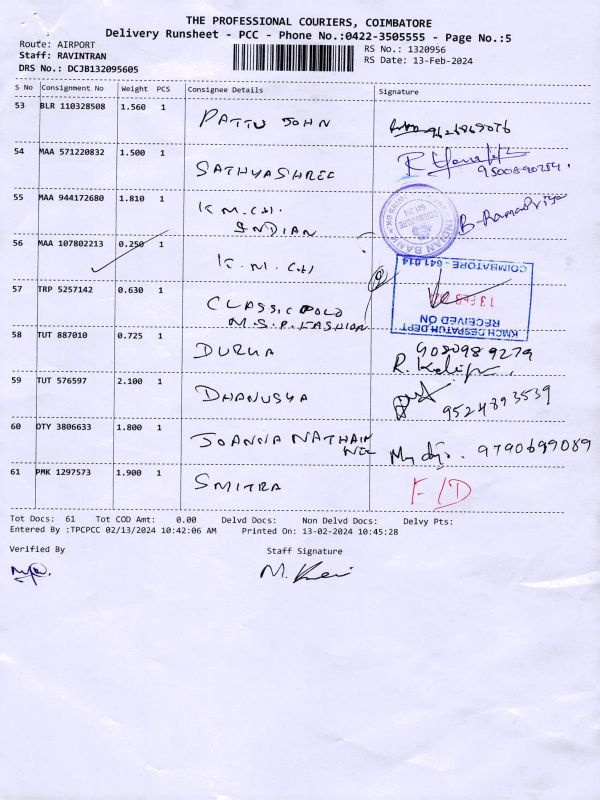 THE PROFESSIONAL COURIERS, COIMBATORE
Delivery Runsheet - PCC - Phone No.:0422-3505555 - Page No.:5
Route: AIRPORT
RS No.: 1320956
Staff: RAVINTRAN
RS Date: 13-Feb-2024
DRS No.: DCJB132095605
S No Consignment No Weight PCS Consignee Details Signature
53 BLR 110328508 1.560 1 PATTU JOHN
54 MAA 571220832 1.500 1 SATHYASHREE 9500890254.
55 MAA 944172680 1.810 1 K.M.C.H. INDIAN B-RamaPriya
INDIAN BANK
56 MAA 107802213 0.250 1 K.M.C.H
COIMBATORE - 641 014
13 FEB
RECEIVED ON
KMCH DESPATCH DEPT
57 TRP 5257142 0.630 1 CLASSIC POLO
M.S.P. FASHION
58 TUT 887010 0.725 1 DURGA 9080989279
59 TUT 576597 2.100 1 DHANUSYA 9524893539
60 OTY 3806633 1.800 1 JOANNA NATHAN 9790699089
61 PMK 1297573 1.900 1 SMITRA F/D
Tot Docs: 61 Tot COD Amt: 0.00 Delvd Docs: Non Delvd Docs: Delvy Pts:
Entered By :TPCPCC 02/13/2024 10:42:06 AM Printed On: 13-02-2024 10:45:28
Verified By Staff Signature